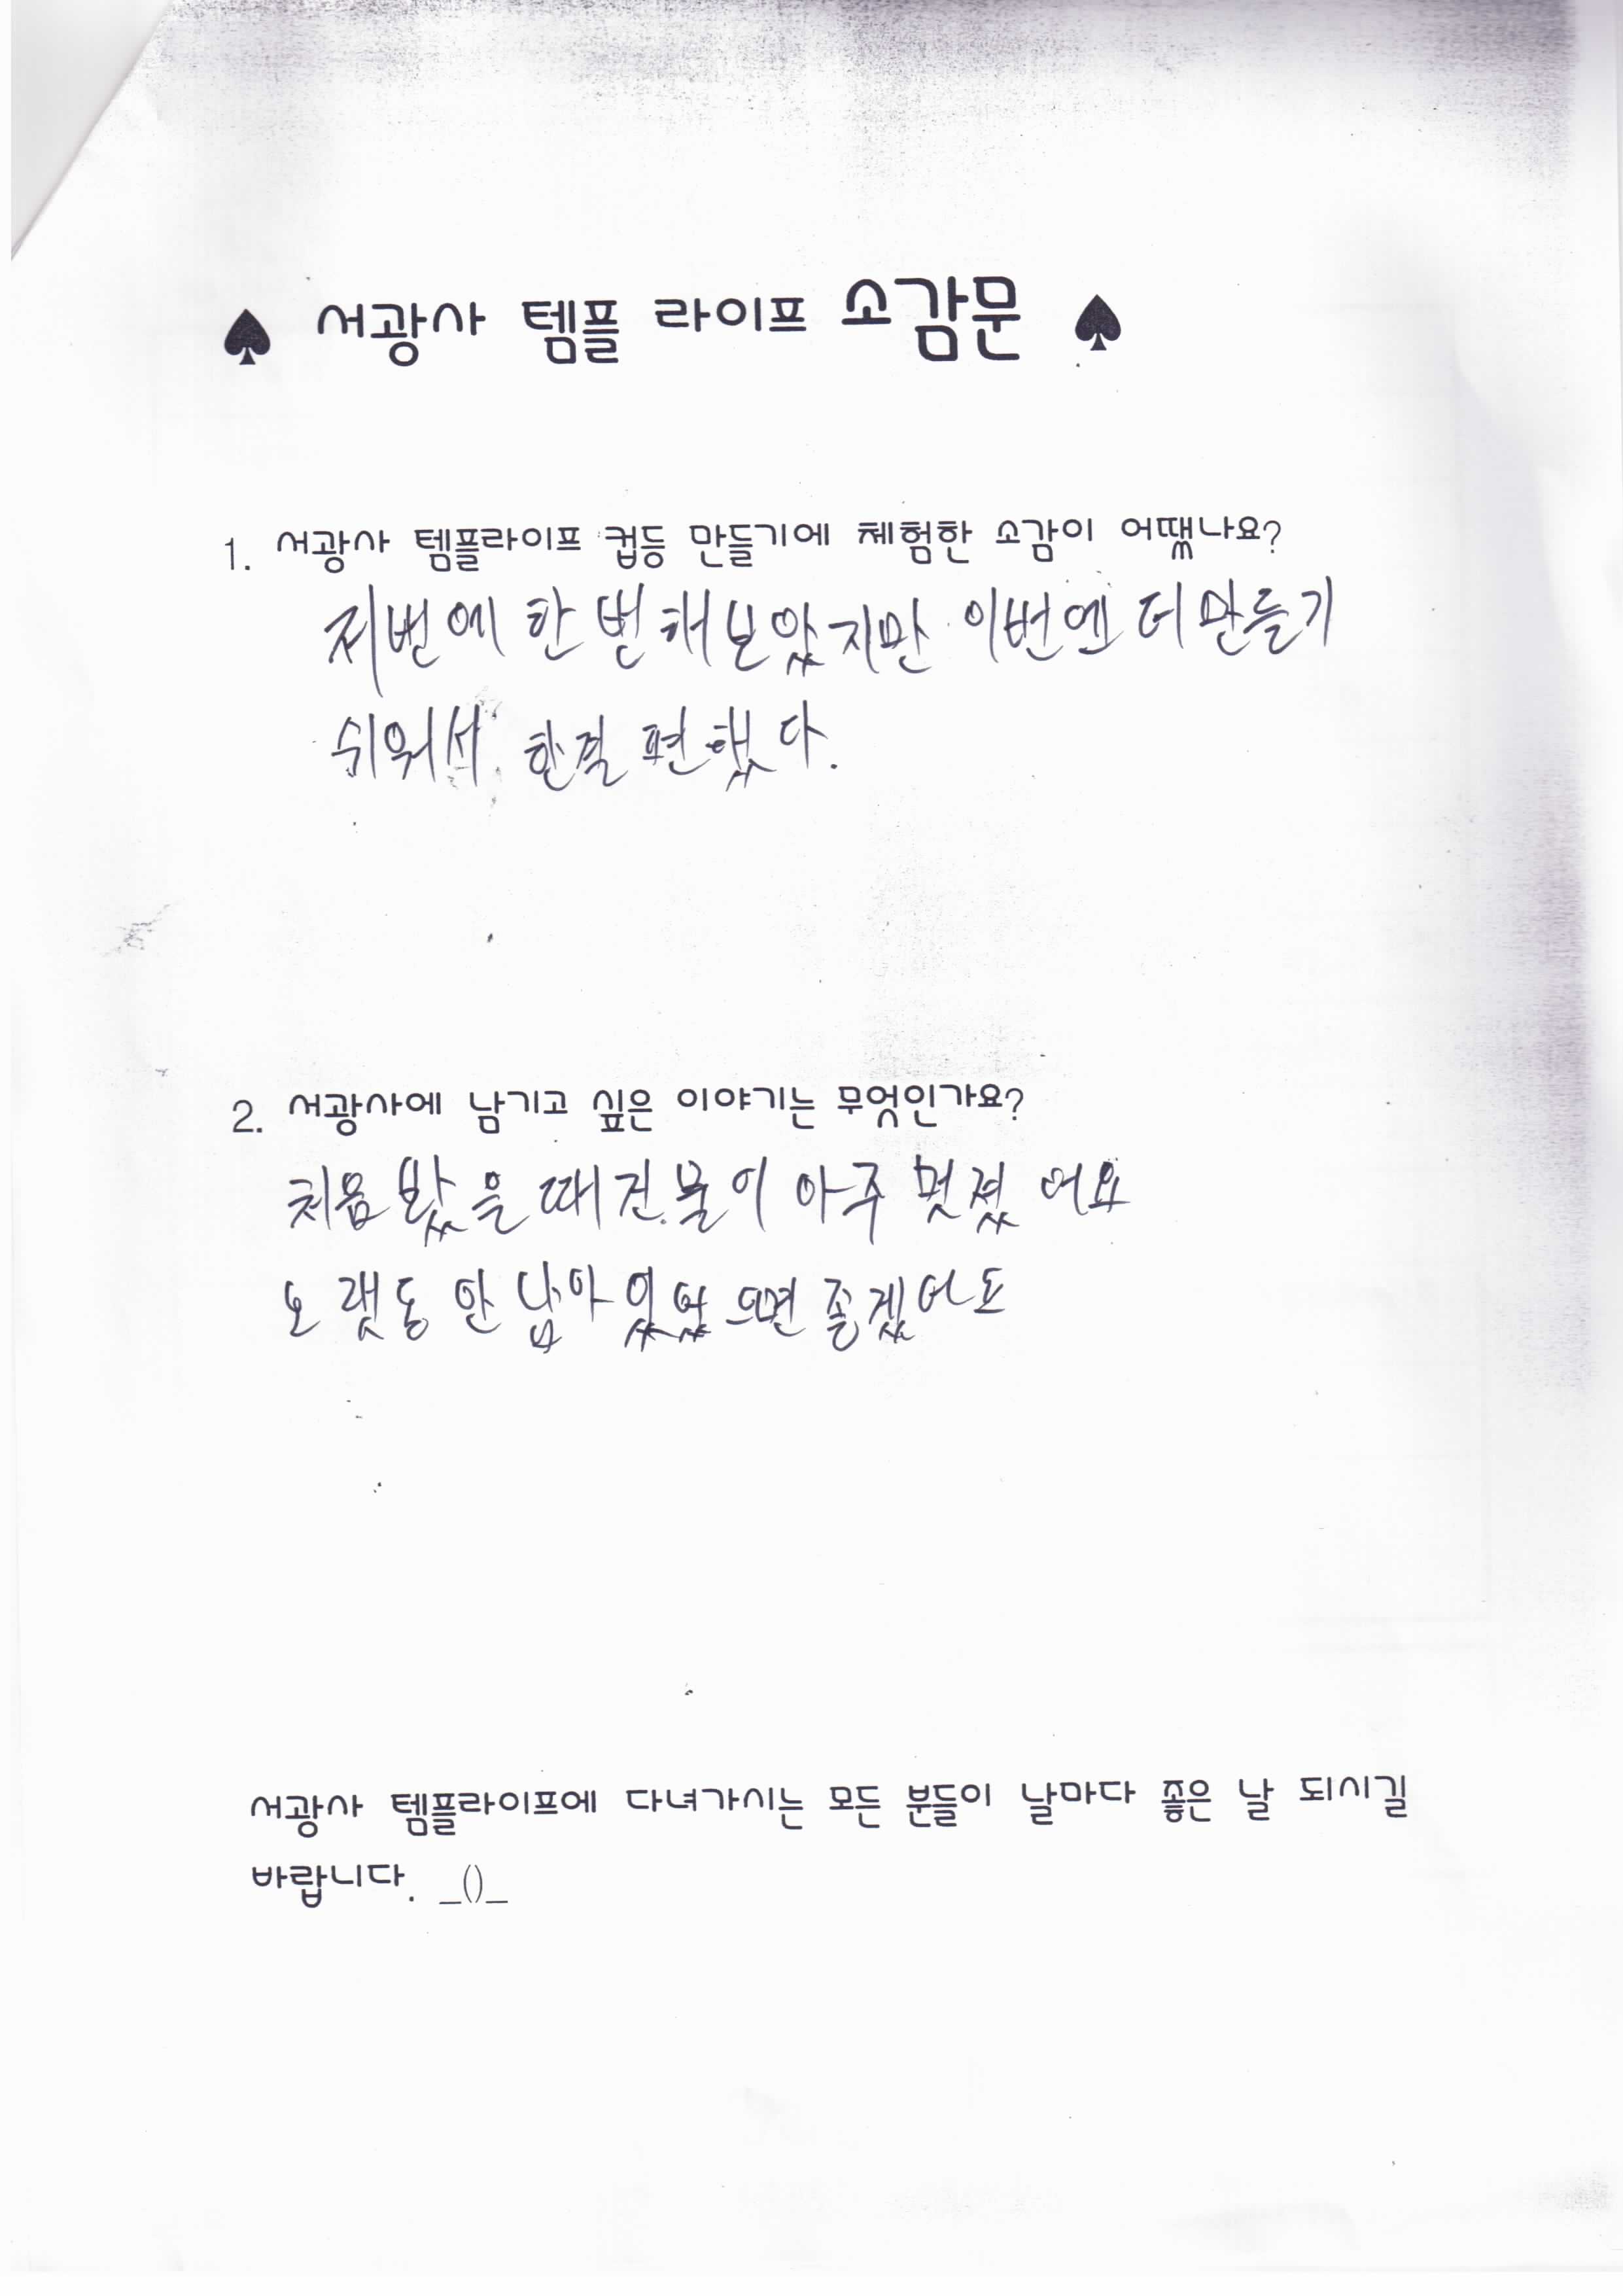 ♠ 서광사 템플 라이프 소감문 ♠
1. 서광사 템플라이프 컵등 만들기에 체험한 소감이 어땠나요?
저번에 한 번 해보았지만 이번엔 더 만들기
쉬워서 한결 편했다.
2. 서광사에 남기고 싶은 이야기는 무엇인가요?
처음 봤을 때 건물이 아주 멋졌어요
오랫동안 남아있었으면 좋겠어요
서광사 템플라이프에 다녀가시는 모든 분들이 날마다 좋은 날 되시길
바랍니다. _()_